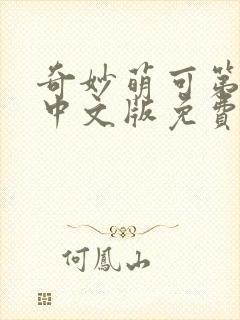 奇妙萌可第
中文版免費
何鳳山